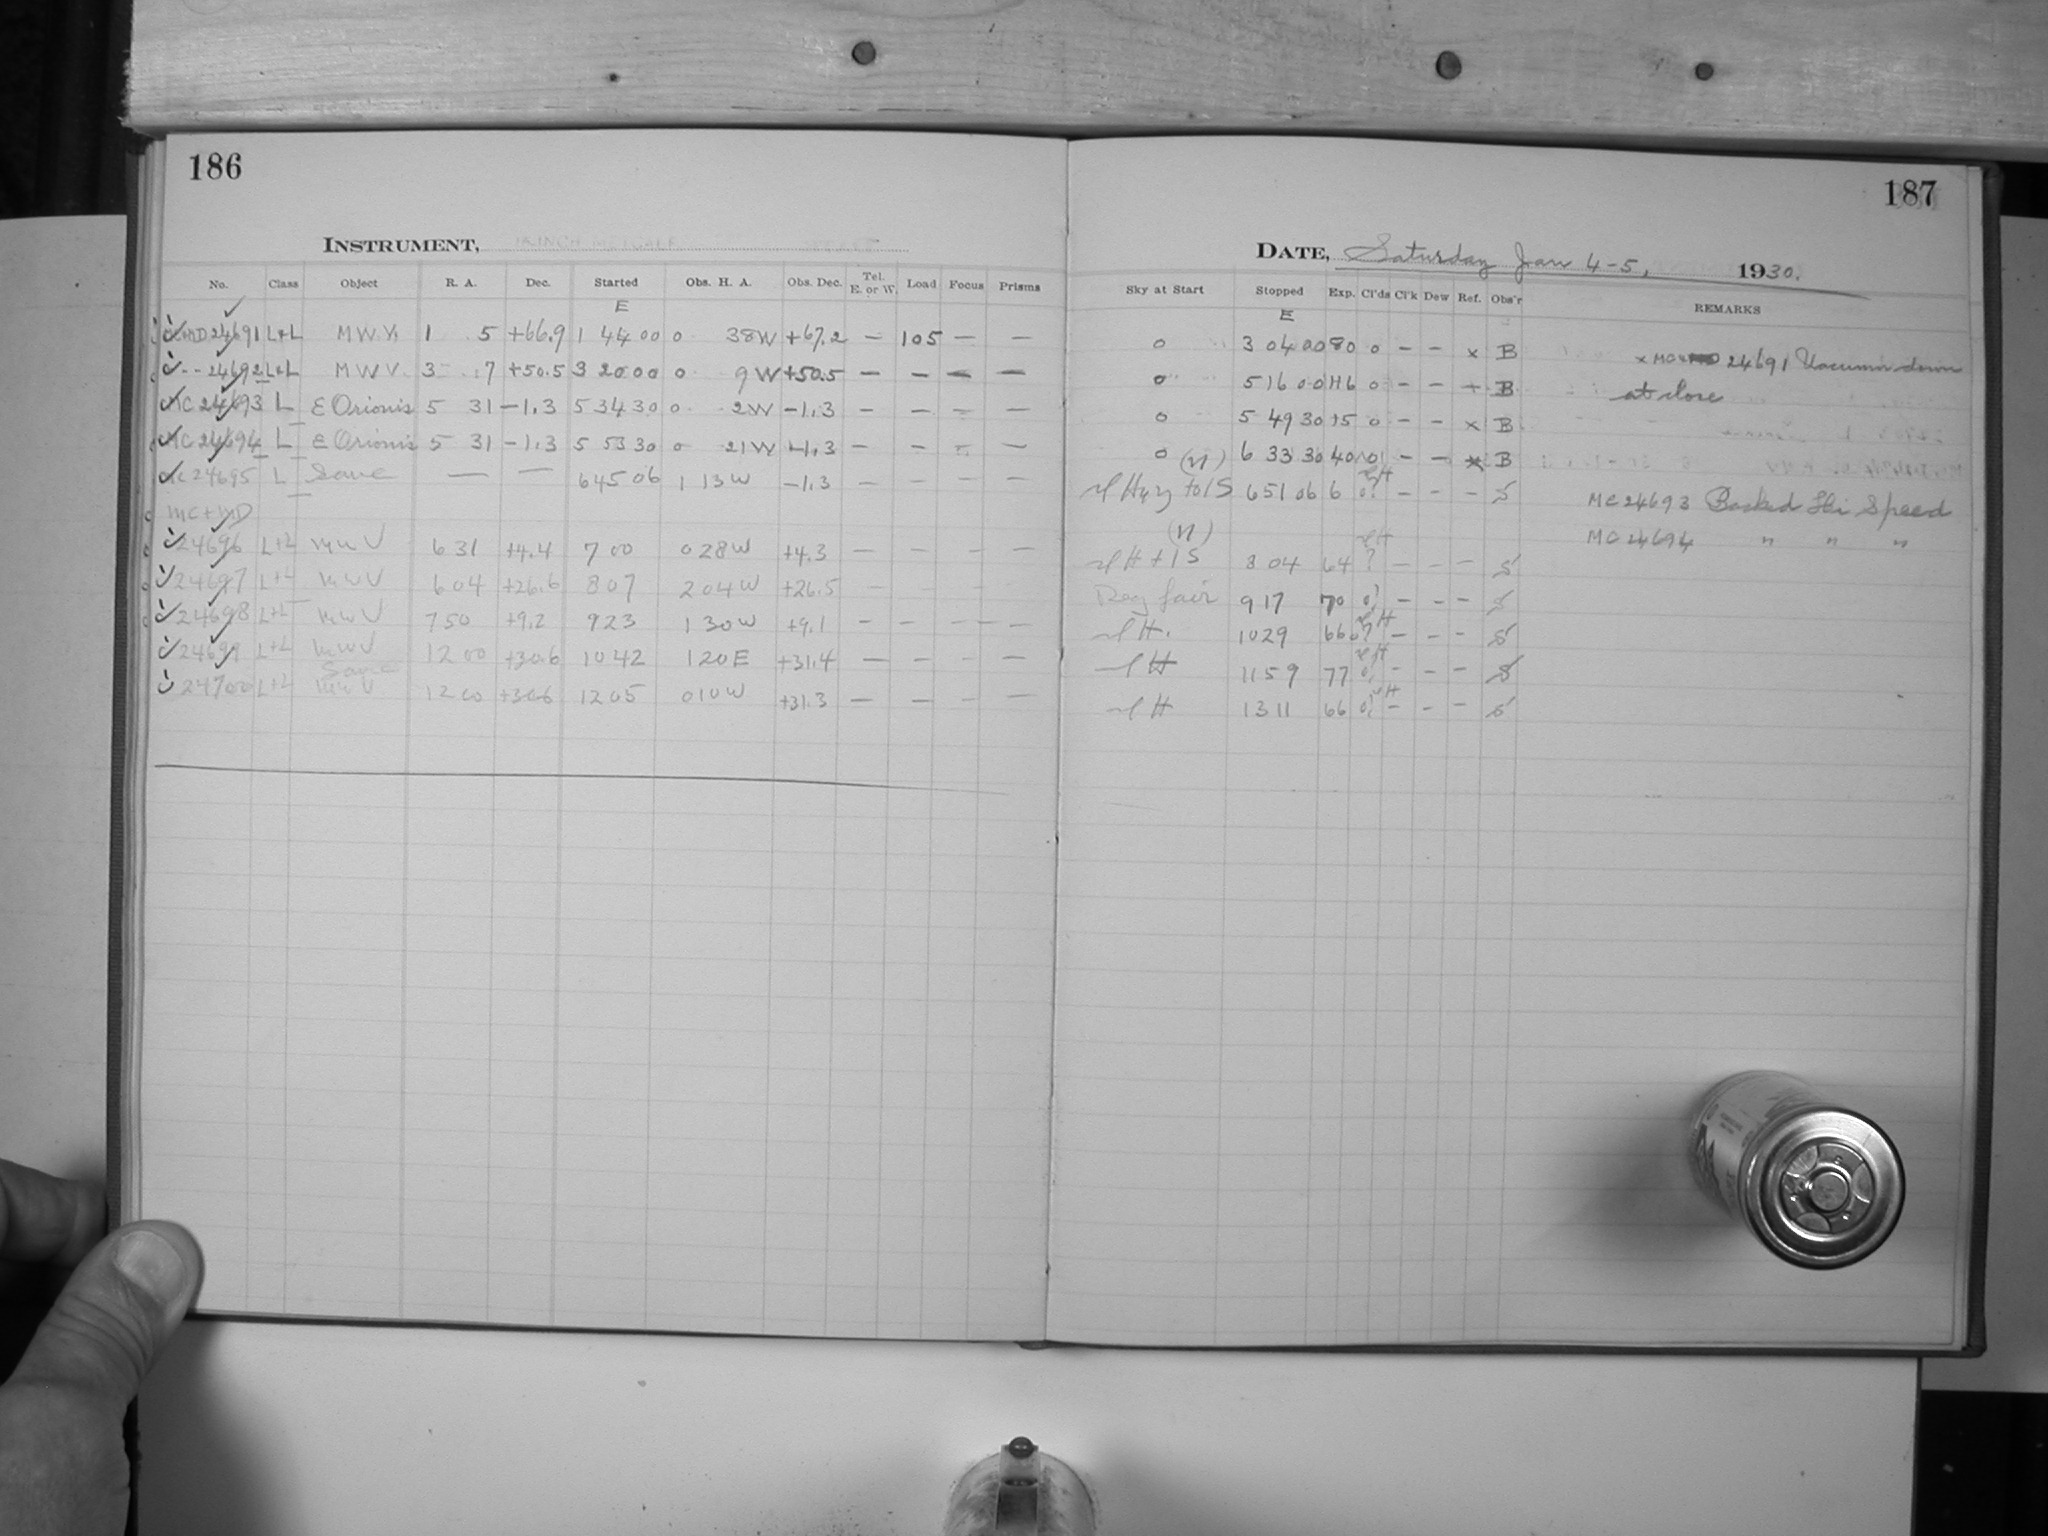 186
187
INSTRUMENT,
DATE, Saturday Jan 4-5, 1930.
No. Class Object R. A. Dec. Started Obs. H. A. Obs. Dec. Tel. E. or W. Load Focus Prisms
Sky at Start Stopped Exp. Cl'ds Cl'k Dew Ref. Obs'r REMARKS
E E
24691 L+L MWV 1 5 +66.9 1 44 00 0 38W +67.2 — 105 — — 0 3 04 00 80 0 — — x B 24691 Vacuum down
24692 L+L MWV 3 7 +50.5 3 20 00 0 9W +50.5 — — — — 0 5 16 00 116 0 — — B at close
MC 24693 L E Orionis 5 31 -1.3 5 34 30 0 2W -1.3 — — — — 0 5 49 30 15 0 — — x B
MC 24694 L E Orionis 5 31 -1.3 5 53 30 0 21W -1.3 — — — — 0 6 33 30 40 — — x B
MC 24695 L Same — — 6 45 06 1 13W -1.3 — — — — 6 51 06 6 — — — S MC 24693 Backed Hi Speed
MC+MD
24696 L+L MWV 6 31 +4.4 7 00 0 28W +4.3 — — — — 8 04 64 ? — — — S MC 24694 " " "
24697 L+L MWV 6 04 +26.6 8 07 2 04W +26.5 — — fair 9 17 70 — — — S
24698 L+L MWV 7 50 +9.2 9 23 1 30W +9.1 — — — — 10 29 66 — — — S
24699 L+L MWV 12 00 +30.6 10 42 1 20E +31.4 — — — — 11 59 77 — — — S
Same
24700 L+L MWV 12 00 +30.6 12 05 0 10W +31.3 — — — — 13 11 66 — — — S